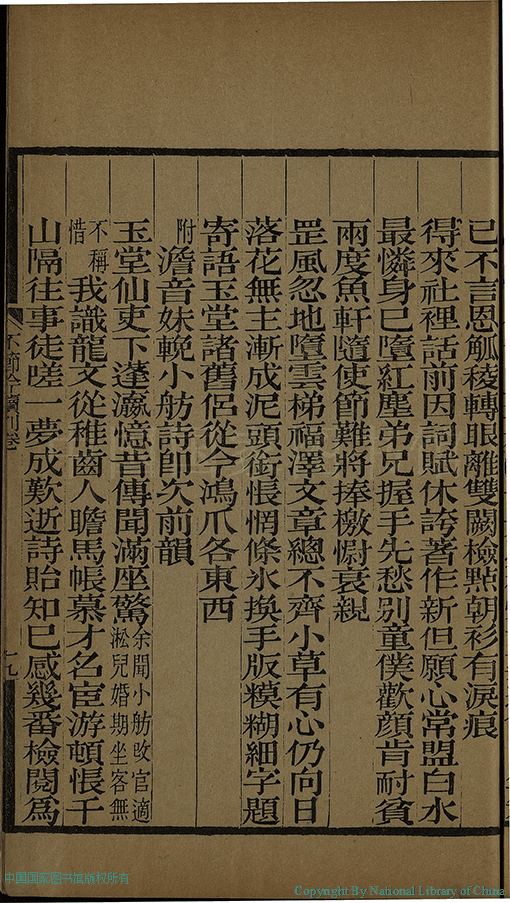 已不言恩觚稜轉眼離雙闕檢點朝衫有淚痕
得來社裡話前因詞賦休誇著作新但願心常盟白水
最憐身已墮紅塵弟兄握手先愁別童僕歡顏肯耐貧
兩度魚軒隨使節難將捧檄慰衰親
罡風忽地墮雲梯福澤文章總不齊小草有心仍向日
落花無主漸成泥頭銜悵惘條冰換手版模糊細字題
寄語玉堂諸舊侶從今鴻爪各東西
附澹音妹輓小舫詩卽次前韻
玉堂仙吏下蓬瀛憶昔傳聞滿座驚余聞小舫改官適淞兒婚期坐客無
不稱惜我識龍文從稚齒人瞻馬帳慕才名宦游頓悵千
山隔往事徒嗟一夢成歎逝詩貽知己感幾番檢閱為
九
中国国家图书馆版权所有
Copyright By National Library of China